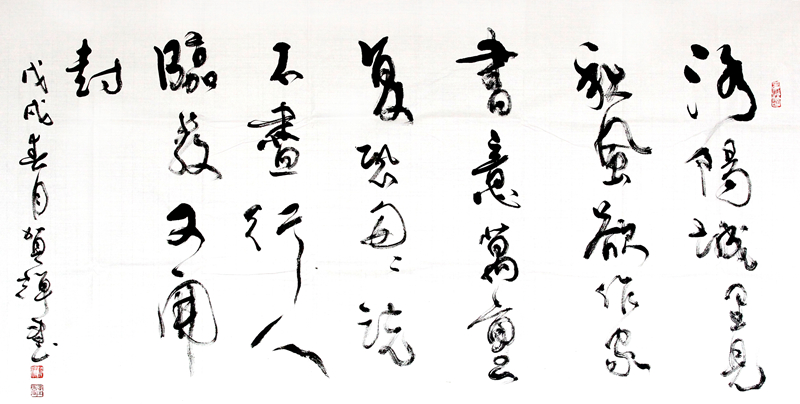 洛陽城里見
秋風欲作家
書意萬重
复恐匆々説
不盡行人
臨發又開
封
戊戌春月賀輝書